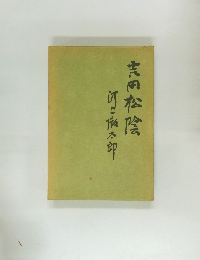 吉田松陰
河上徹太郎